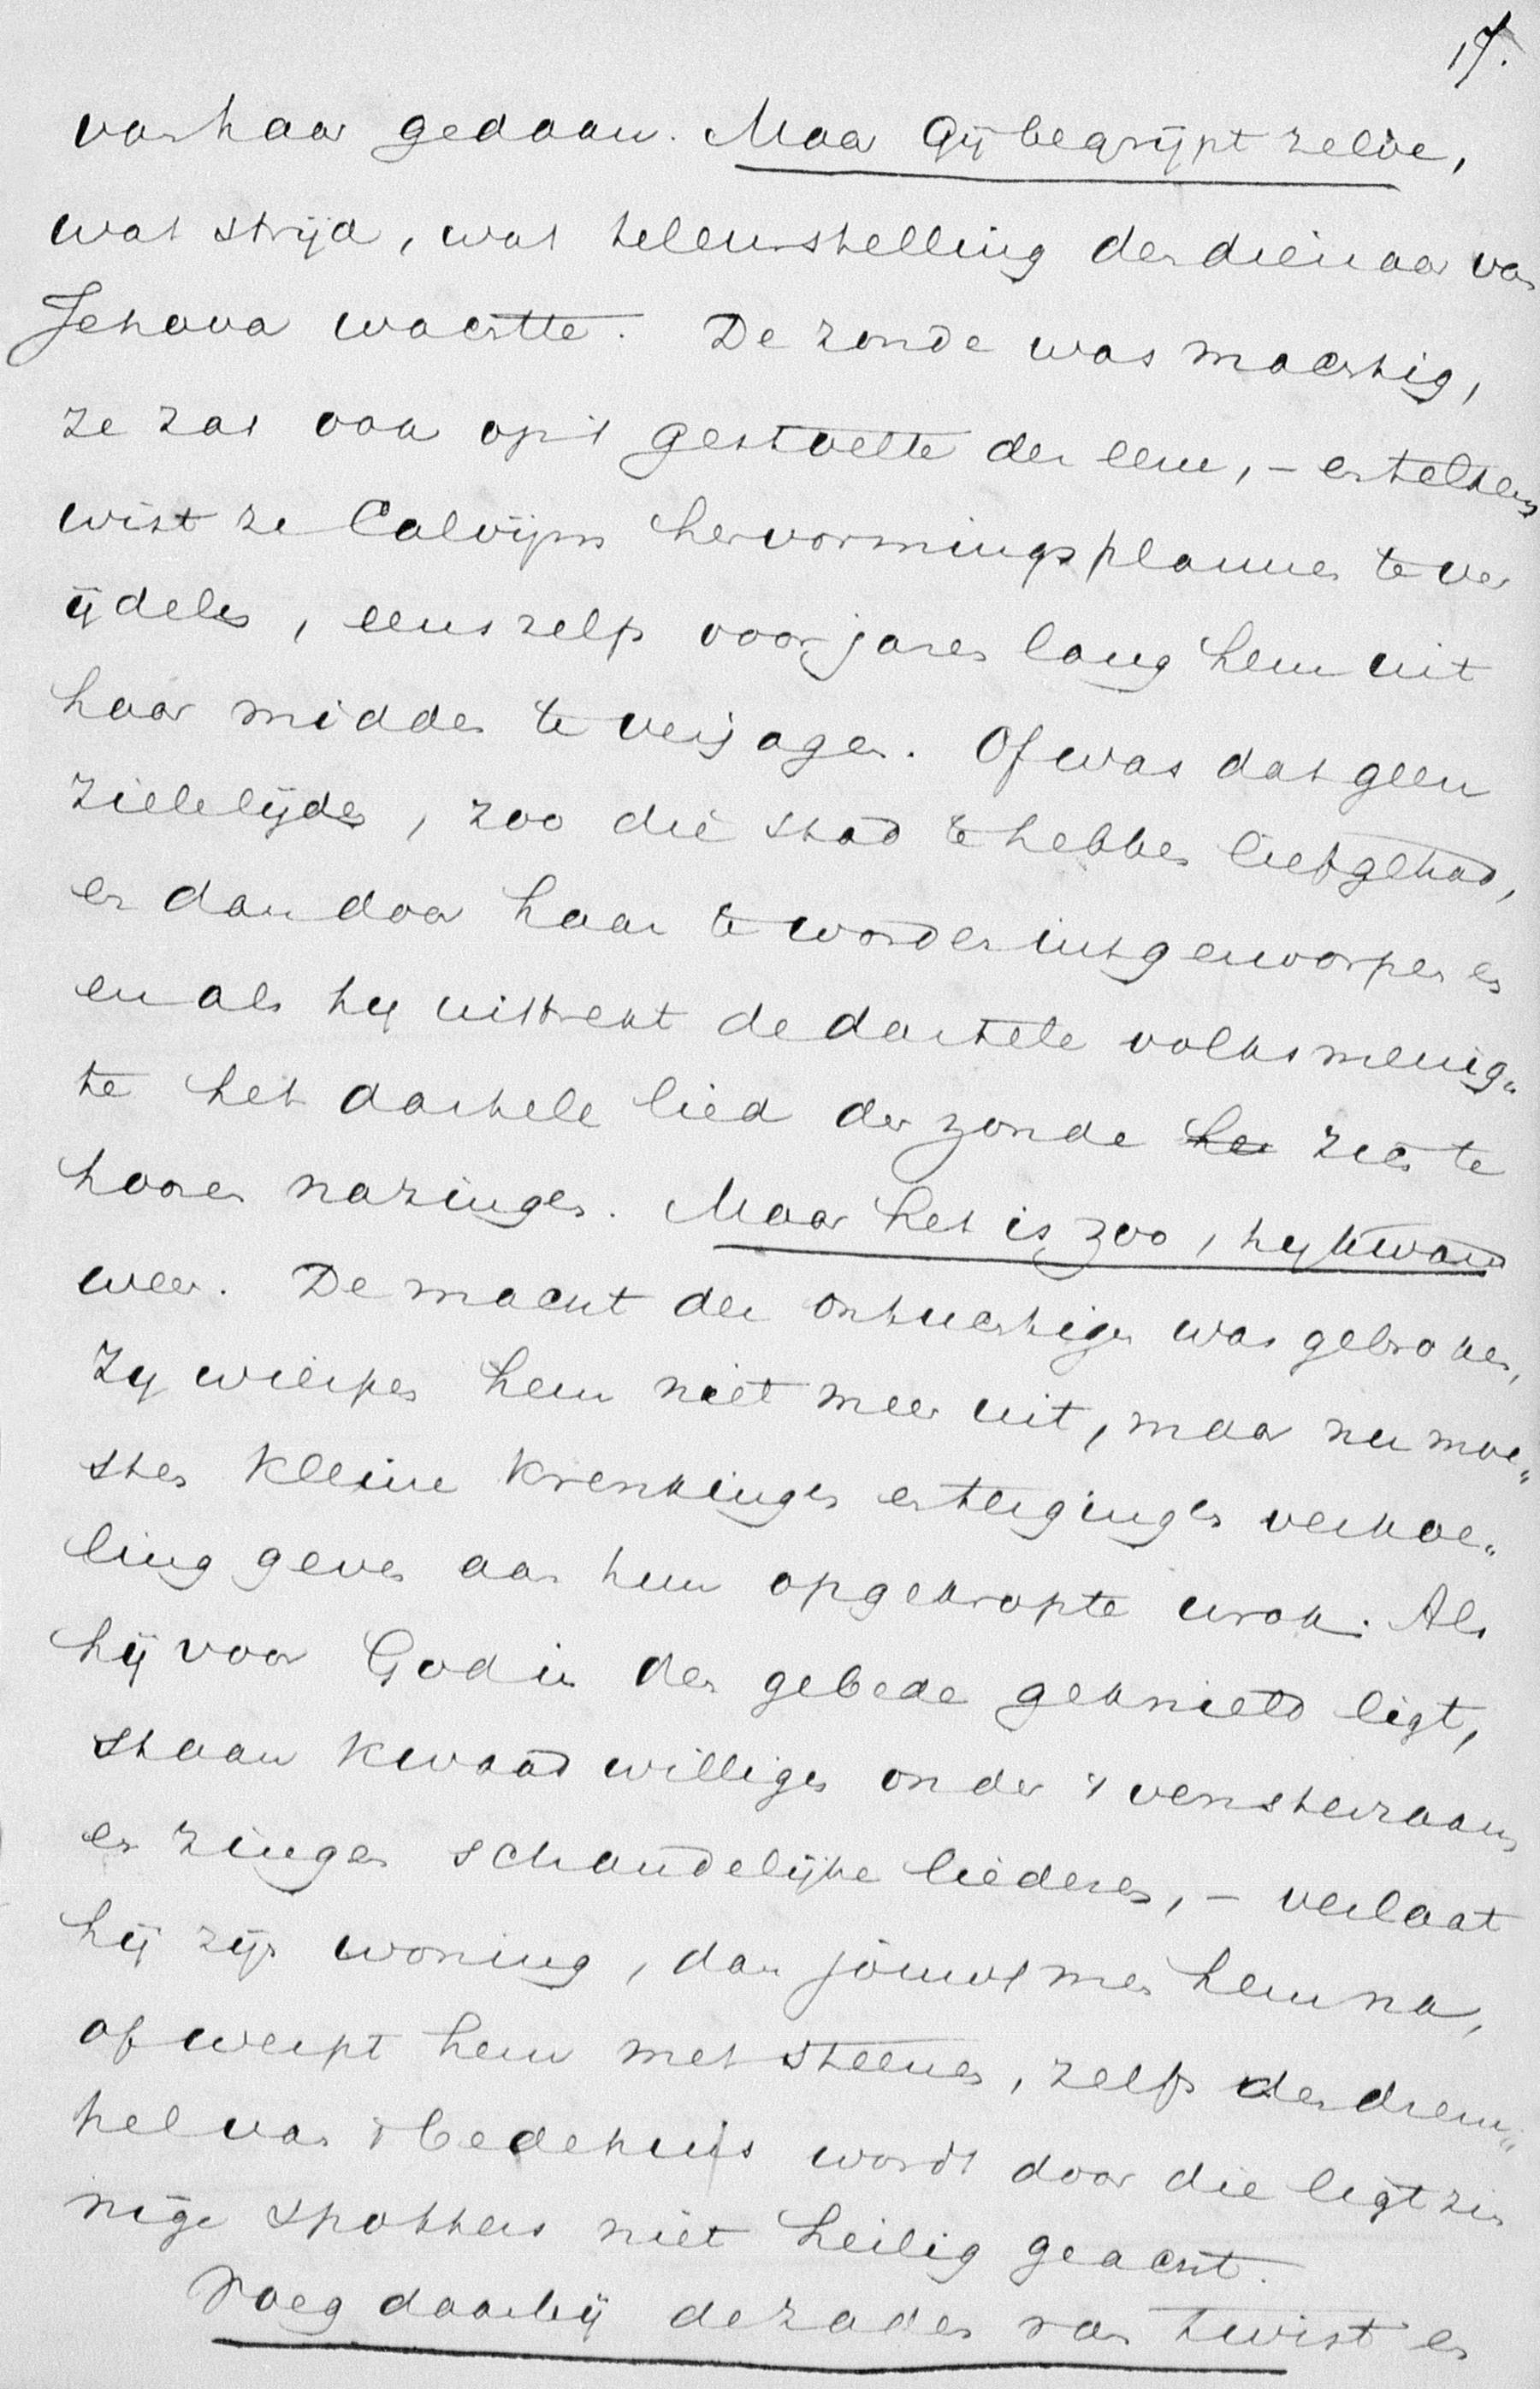 17.
van haar gedaan. Maar Gij begrijpt zelve,
wat strijd, wat teleurstelling den dienaar van
Jehova wachtte. De zonde was machtig,
ze zat ook op 't gestoelte der eere, – en telkens
wist ze Calvijns hervormingsplannen te ver
ijdelen, eens zelfs voor jaren lang hem uit
haar midden te verjagen. Of was dat geen
zielelijden, zoo die stad te hebben liefgehad,
en dan door haar te worden uitgeworpen en
en als hij uittrekt de dartele volksmenig„
te het dartele lied der zonde hei zich te
hooren nazingen. Maar het is zoo, hij kwam
weer. De macht der ontuchtigen was gebroken,
Zij wierpen hem niet meer uit, maar nu moe„
sten kleine krenkingen en tergingen verkoe„
ling geven aan hun opgekropte wrok. Als
hij voor God in den gebede geknield ligt,
staan kwaadwilligen onder 't vensterraam
en zingen schandelijke liederen, – verlaat
hij zijn woning, dan jouwt men hem na,
of werpt hem met steenen, zelfs den drem„
pel van 't bedehuis wordt door die ligtzin
nige spotters niet heilig geacht.
Voeg daarbij de zaden van twist en